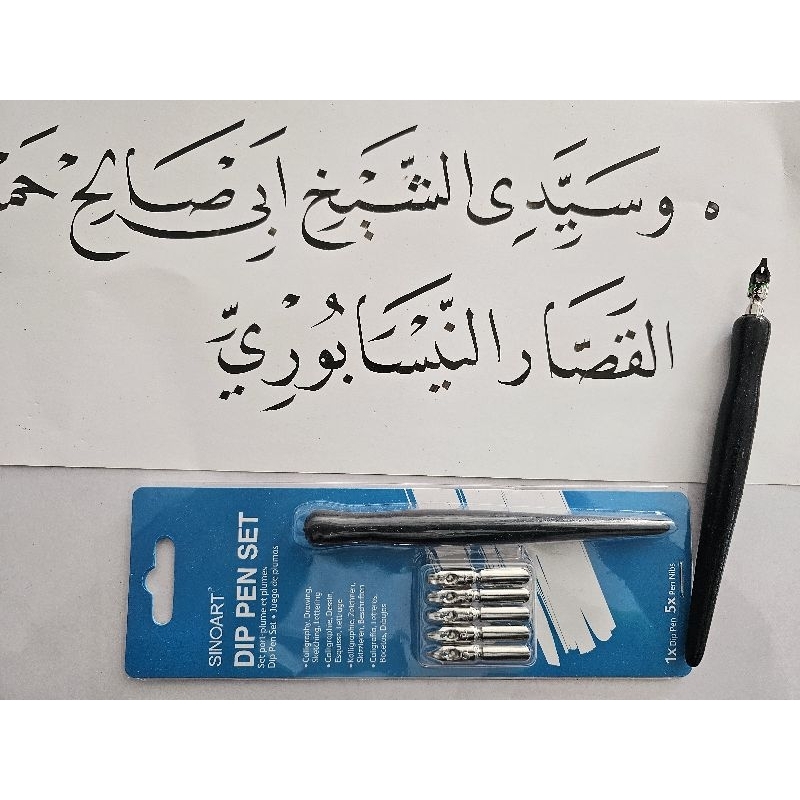 وَسَيِّدِي الشَّيْخِ اَبِي صَالِحْ
القَصَّار النَّيْسَابُوْرِيّ
SINOART
DIP PEN SET
Set port-plume et plumes
Dip Pen Set • Juego de plumas
• Calligraphy, Drawing,
Sketching, Lettering
• Calligraphie, Dessin,
Esquisse, Lettrage
• Kalligraphie, Zeichnen,
Skizzieren, Beschriften
• Caligrafía, Letreros,
Bocetos, Dibujos
1x Dip Pen 5x Pen Nibs